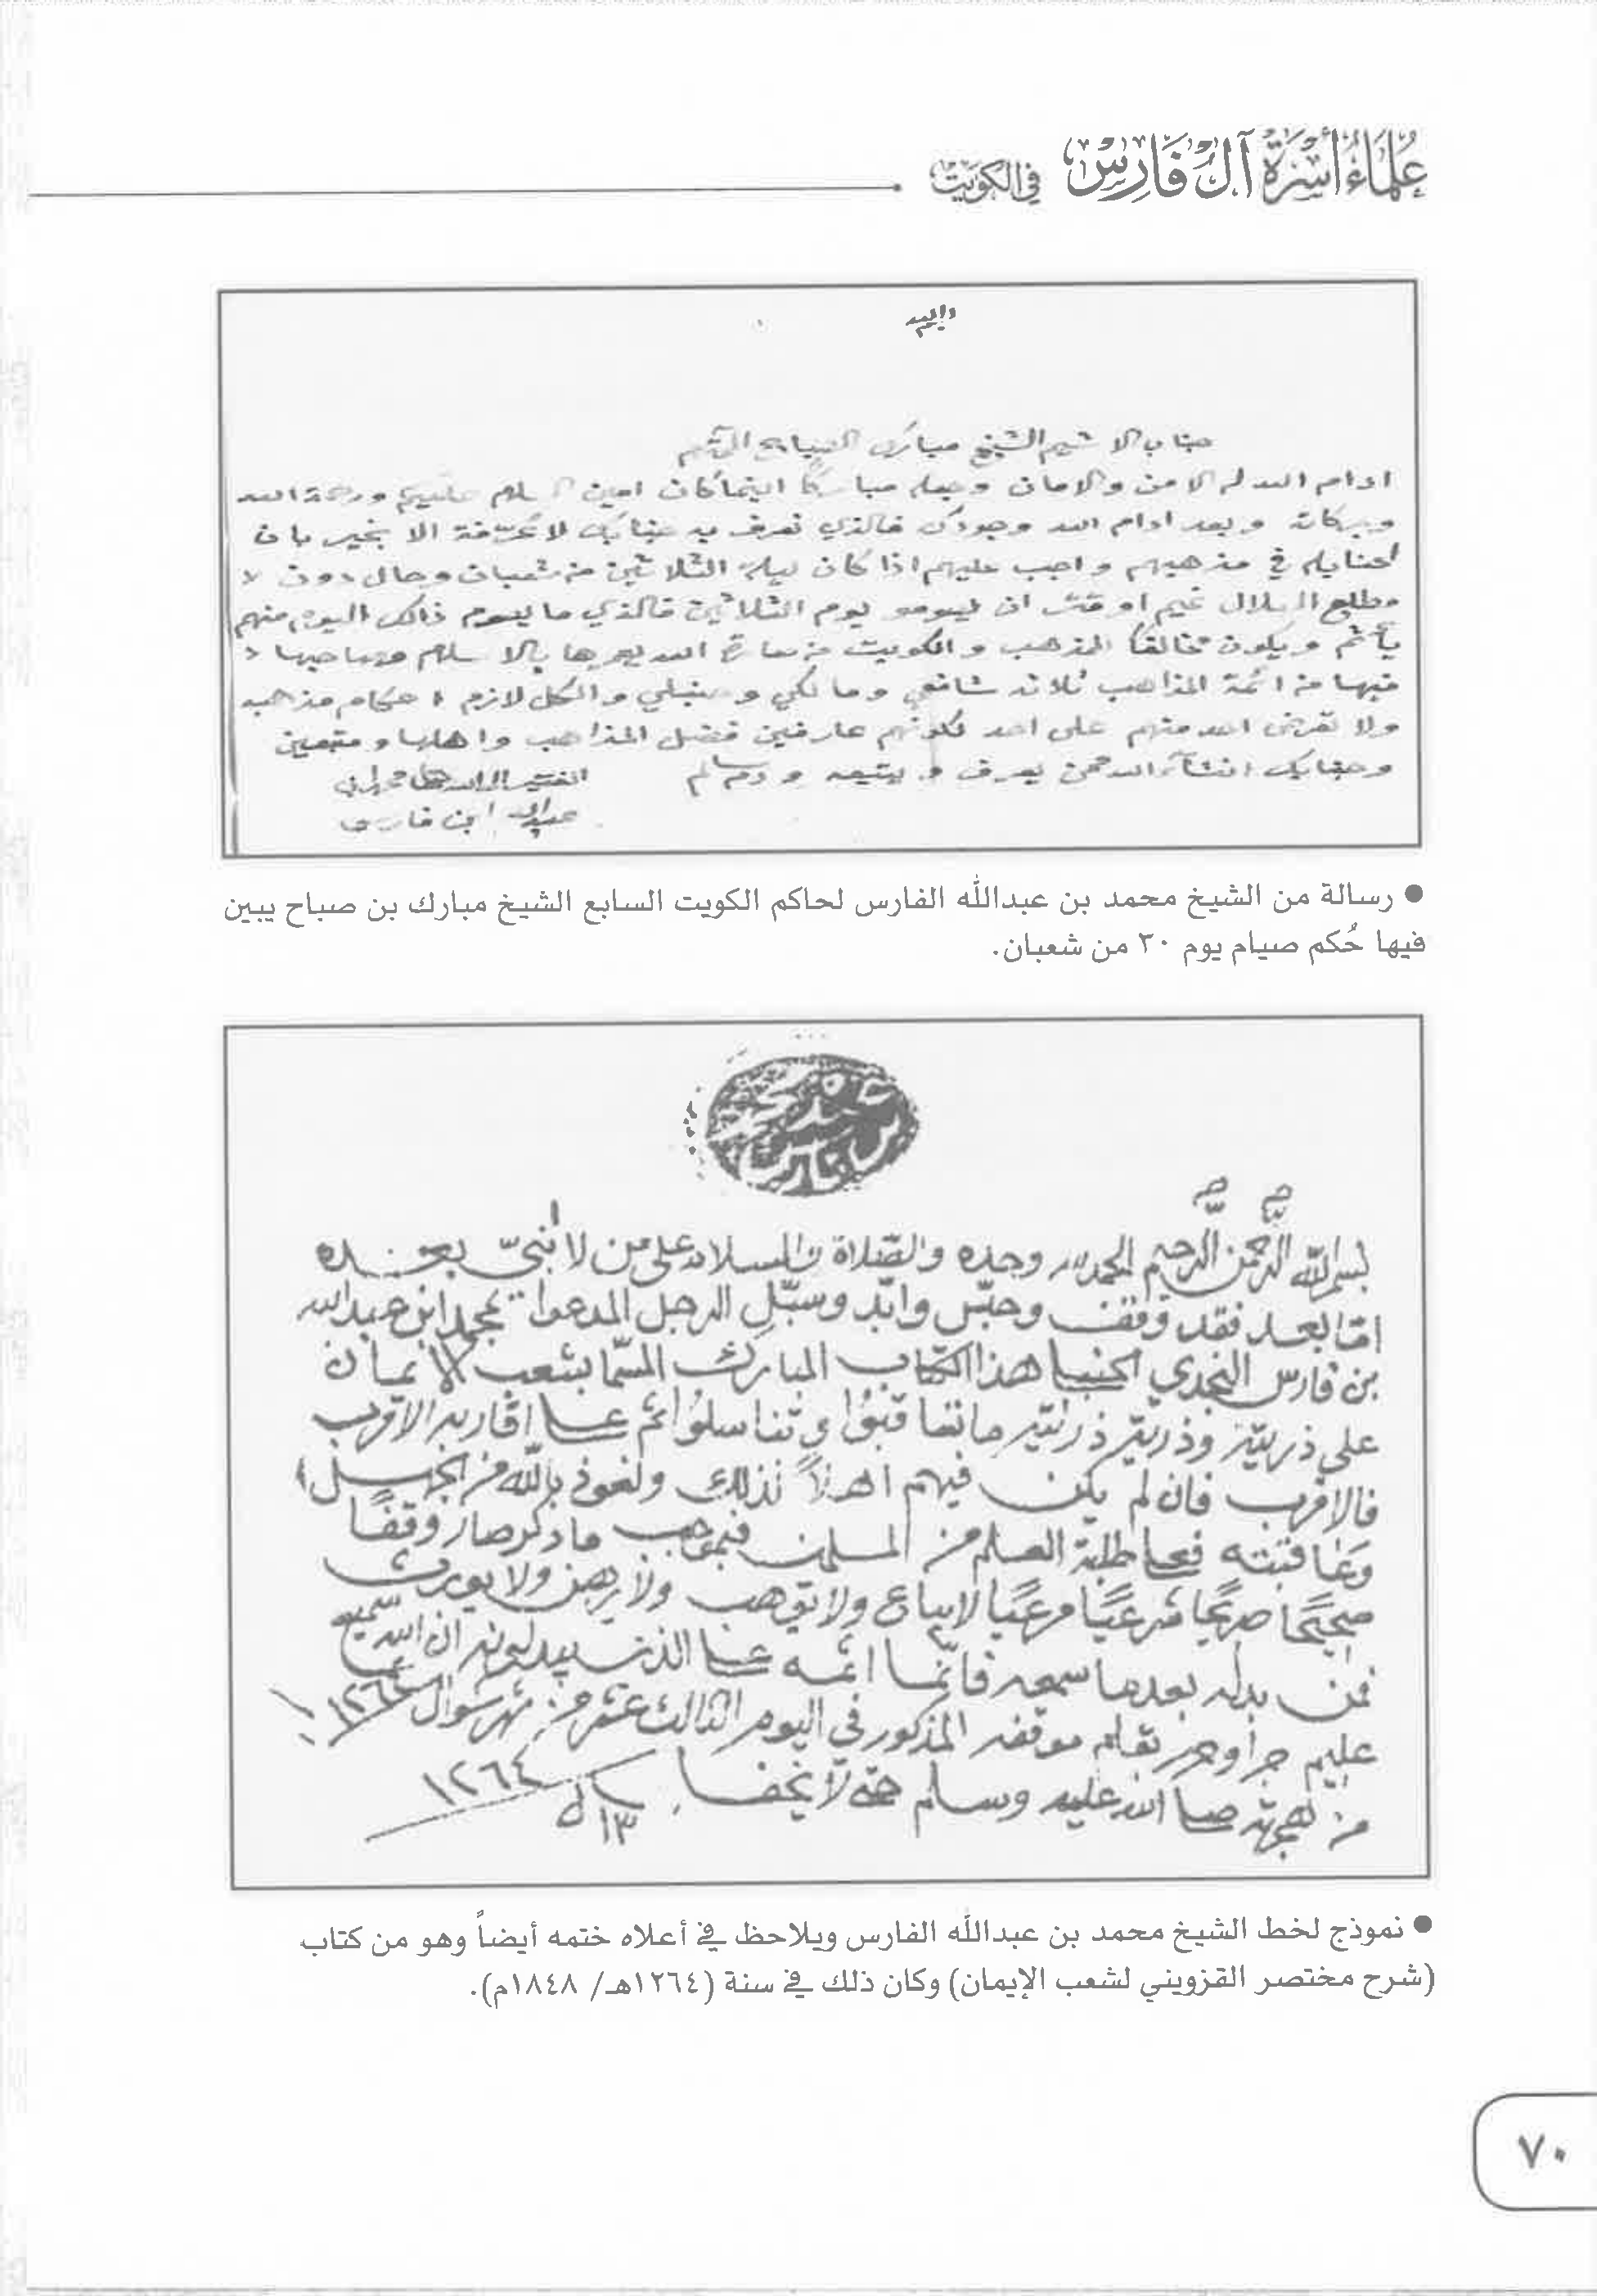 عُلَمَاءُ أُسْرَة آل فَارِسْ في الكويت
جناب الاشيم الشيخ مبارك الصباح المحترم
ادام الله له الامن والامان وجعله مباركا اينما كان امين السلام عليكم ورحمة الله
وبركاته وبعد ادام الله وجودك فالذي نعرف به جنابك لا مُعرّفة الا بخير بان
لحنابله في مذهبهم واجب عليهم اذا كان ليلة الثلاثين من شعبان وحال دون
مطلع الهلال غيم او قتر ان يصومو يوم الثلاثين فالذي ما يصوم ذالك اليوم منهم
يأثم ويكون مخالفا المذهب والكويت الله يعمرها بالاسلام
فيها من ائمة المذاهب ثلاثه شافعي ومالكي وحنبلي والكل لازم احكام مذهبه
ولا تعرض احد منهم على احد لكونهم عارفين فضل المذاهب واهلها ومتبعين
وجنابك انشآء الله ممن يعرف ويتبعه ودم سالم
الفقير الى الله محمد ابن
عبدالله ابن فارس
● رسالة من الشيخ محمد بن عبدالله الفارس لحاكم الكويت السابع الشيخ مبارك بن صباح يبين
فيها حُكم صيام يوم ٣٠ من شعبان.
بسم الله الرحمن الرحيم الحمد لله وحده والصّلاة والسلام على من لا نبيّ بعده
امّا بعد فقد وقف وحبّس وابّد وسبّل الرجل المدعوا بمحمد ابن عبدالله
بن فارس النجدي الحنبلي هذا الكتاب المبارك المسمّا بشعب الايمان
على ذريته وذرية ذريته ما تعاقبوا وتناسلوا ثم على اقاربه الاقرب
فالاقرب فان لم يكن فيهم اهلاً لذلك ونعوذ بالله من الجهل
وعاقبته فعلى طلبة العلم من المسلمين فبموجب ما ذكر صار وقفًا
صحيحًا صريحًا شرعيًا مرعيًا لا يباع ولا يوهب ولا يرهن ولا يورث
فمن بدله بعدما سمعه فانّما اثمه على الذين يبدلونه ان الله سميع
عليم جرا وحرر بقلم موقفه المذكور في اليوم الثالث عشر من شهر شوال ١٢٦٤
من هجرته صلى الله عليه وسلم حتى لا يخفا
١٣ ل ١٢٦٤
● نموذج لخط الشيخ محمد بن عبدالله الفارس ويلاحظ في أعلاه ختمه أيضاً وهو من كتاب
(شرح مختصر القزويني لشعب الإيمان) وكان ذلك في سنة (١٢٦٤هـ/ ١٨٤٨م).
٧٠